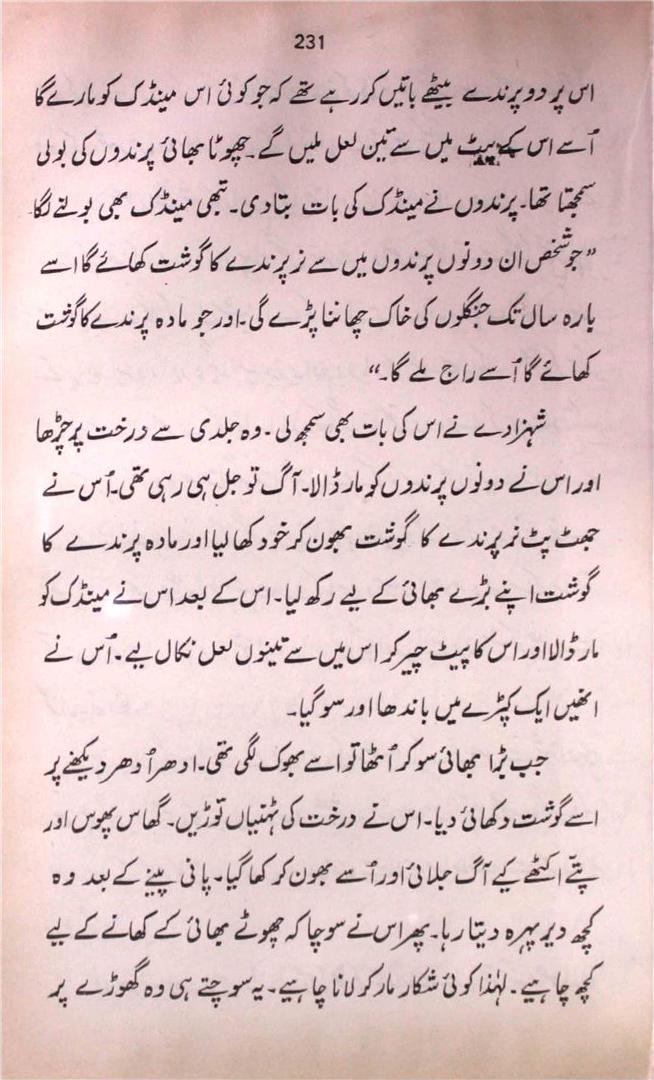 231
اس پر دو پرندے بیٹھے باتیں کر رہے تھے کہ جو کوئی اس مینڈک کو مارے گا
اُسے اس کے پیٹ میں سے تین لعل ملیں گے۔ چھوٹا بھائی پرندوں کی بولی
سمجھتا تھا۔ پرندوں نے مینڈک کی بات بتا دی۔ تبھی مینڈک بھی بولنے لگا
”جو شخص ان دونوں پرندوں میں سے نر پرندے کا گوشت کھائے گا اسے
بارہ سال تک جنگلوں کی خاک چھاننا پڑے گی۔ اور جو مادہ پرندے کا گوشت
کھائے گا اُسے راج ملے گا۔“
شہزادے نے اس کی بات بھی سمجھ لی۔ وہ جلدی سے درخت پر چڑھا
اور اس نے دونوں پرندوں کو مار ڈالا۔ آگ تو جل ہی رہی تھی۔ اُس نے
جھٹ پٹ نر پرندے کا گوشت بھون کر خود کھا لیا اور مادہ پرندے کا
گوشت اپنے بڑے بھائی کے لیے رکھ لیا۔ اس کے بعد اس نے مینڈک کو
مار ڈالا اور اس کا پیٹ چیر کر اس میں سے تینوں لعل نکال لیے۔ اُس نے
انھیں ایک کپڑے میں باندھا اور سو گیا۔
جب بڑا بھائی سو کر اُٹھا تو اسے بھوک لگی تھی۔ ادھر اُدھر دیکھنے پر
اسے گوشت دکھائی دیا۔ اس نے درخت کی ٹہنیاں توڑیں۔ گھاس پھوس اور
پتّے اکٹھے کیے آگ جلائی اور اُسے بھون کر کھا گیا۔ پانی پینے کے بعد وہ
کچھ دیر پہرہ دیتا رہا۔ پھر اس نے سوچا کہ چھوٹے بھائی کے کھانے کے لیے
کچھ چاہیے۔ لہٰذا کوئی شکار مار کر لانا چاہیے۔ یہ سوچتے ہی وہ گھوڑے پر